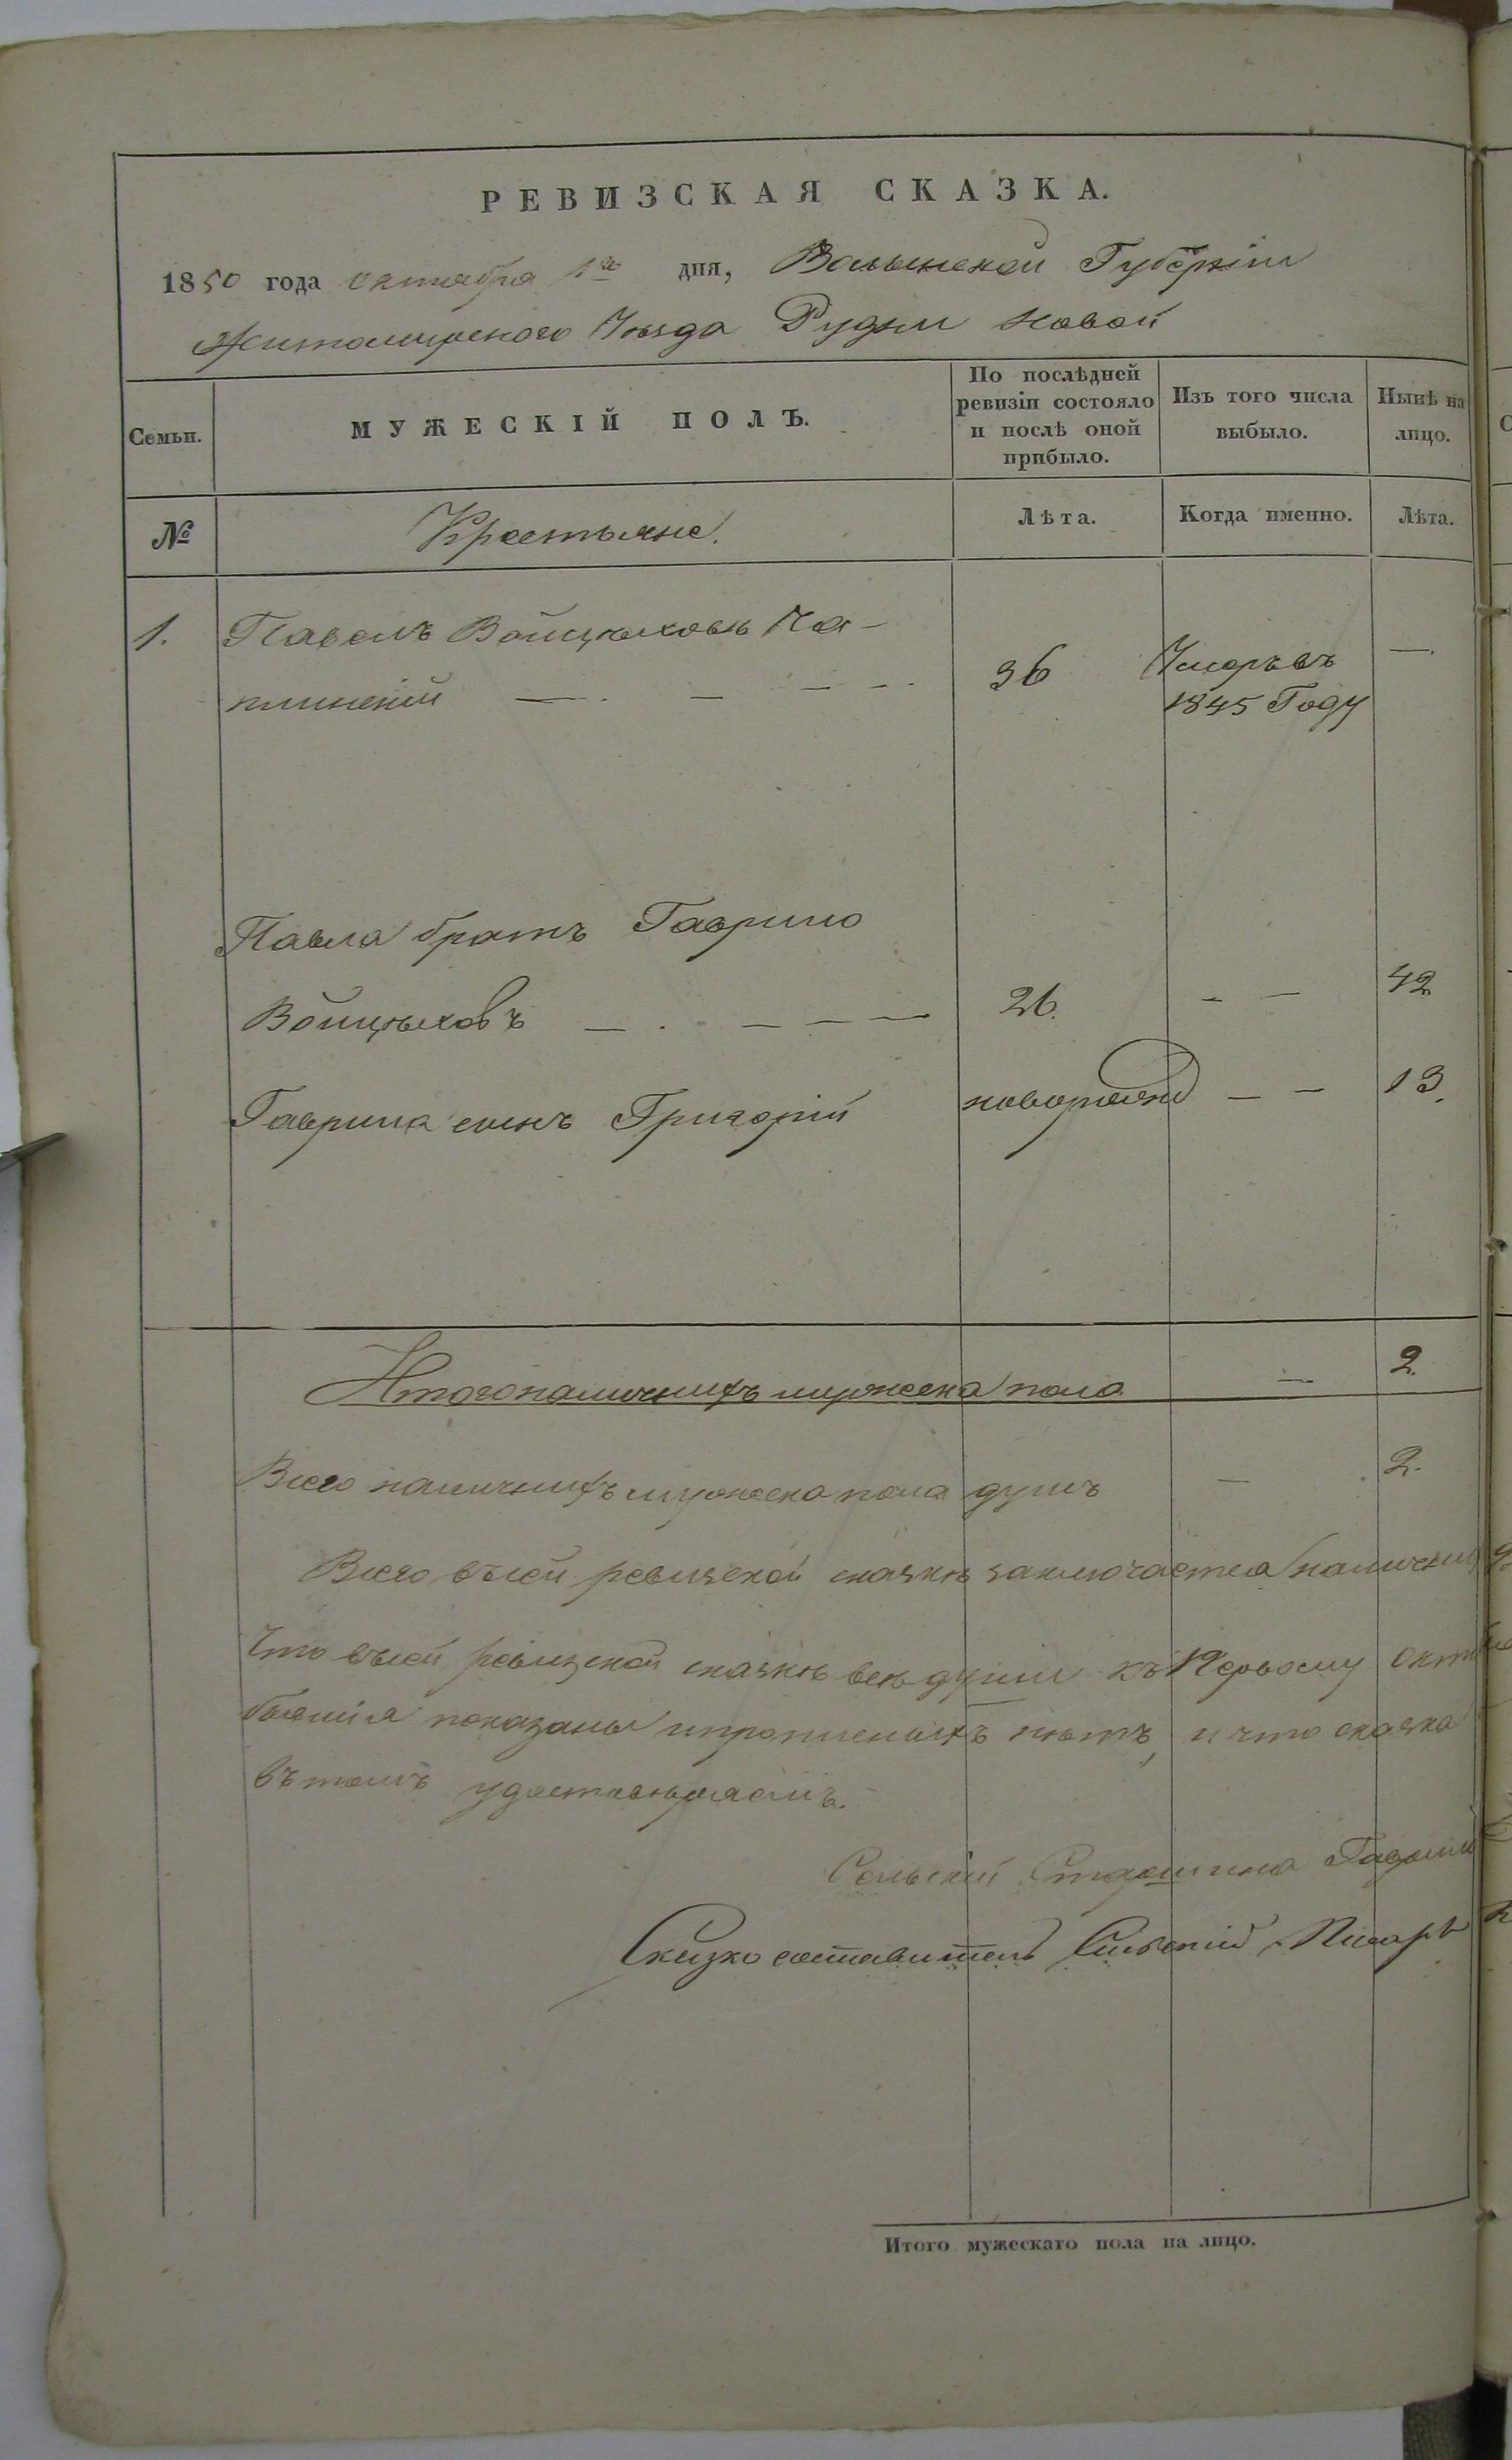 РЕВИЗСКАЯ СКАЗКА.
1850 года октября 1го дня, Волынской Губерніи
Житомирского Уѣзда Рудни Новой
Семьи.
МУЖЕСКІЙ ПОЛЪ.
По послѣдней ревизіи состояло и послѣ оной прибыло.
Изъ того числа выбыло.
Нынѣ на лицо.
№
Крестьяне.
Лѣта.
Когда именно.
Лѣта.
1. Павелъ Войцѣховъ
36 Умеръ въ —
1845 Году
Павла братъ Гаврило
Войцѣховъ — — — — 26. — — 42
Гаврила сынъ Григорій новорожд — — 13.
Итого наличныхъ мужеска пола — 2.
Всего наличныхъ мужеска пола душъ — 2.
Всего въ сей ревизской сказкѣ заключается наличных
Что въ сей ревизской сказкѣ всѣ души къ Первому окт
бывшія показаны и прописныхъ нѣтъ, и что сказка
въ томъ удостовѣряемъ.
Сельскій Старшина Гаврило
Сказко составитель Сельскій Писарь
Итого мужескаго пола на лицо.